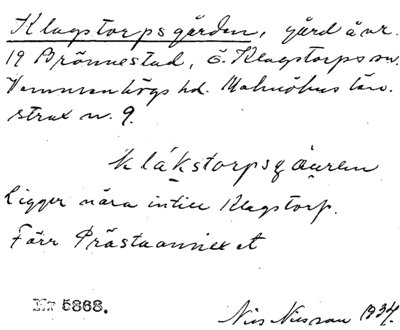 Klagstorpsgården, gård å nr.
19 Brönnestad, Ö. Klagstorps sn.
Vemmenhögs hd. Malmöhus län.
strax n. 9.
klákstorpsgåuren
Ligger nära intill Klagstorp.
Förr Prästaannexet
Nr 5868.
Nils Nilsson 1934.